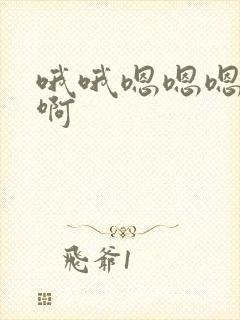 哦哦嗯嗯嗯
啊
飛爺1